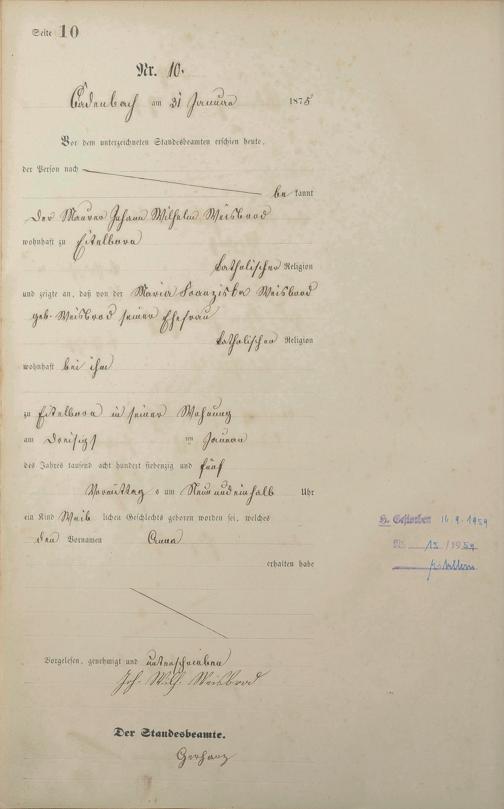 Seite 10
Nr. 10.
Cadenbach am 31 Januar 1875
Vor dem unterzeichneten Standesbeamten erschien heute,
der Person nach
be kannt
der Maurer Johann Wilhelm Weisbrod
wohnhaft zu Eitelborn
katholischer Religion
und zeigte an, daß von der Maria Franziska Weisbrod
geb. Weisbrod seiner Ehefrau
katholischer Religion
wohnhaft bei ihm
zu Eitelborn in seiner Wohnung
am Dreisigst im Januar
des Jahres tausend acht hundert siebenzig und fünf
Vormittag s um Neun und einhalb Uhr
ein Kind Weib lichen Geschlechts geboren worden sei, welches
den Vornamen Anna
erhalten habe
H. Gestorben 16.9.1959
Nr. 12/1959
Vorgelesen, genehmigt und unterschrieben
Joh. Wilh. Weisbrod
Der Standesbeamte.
Gerharz